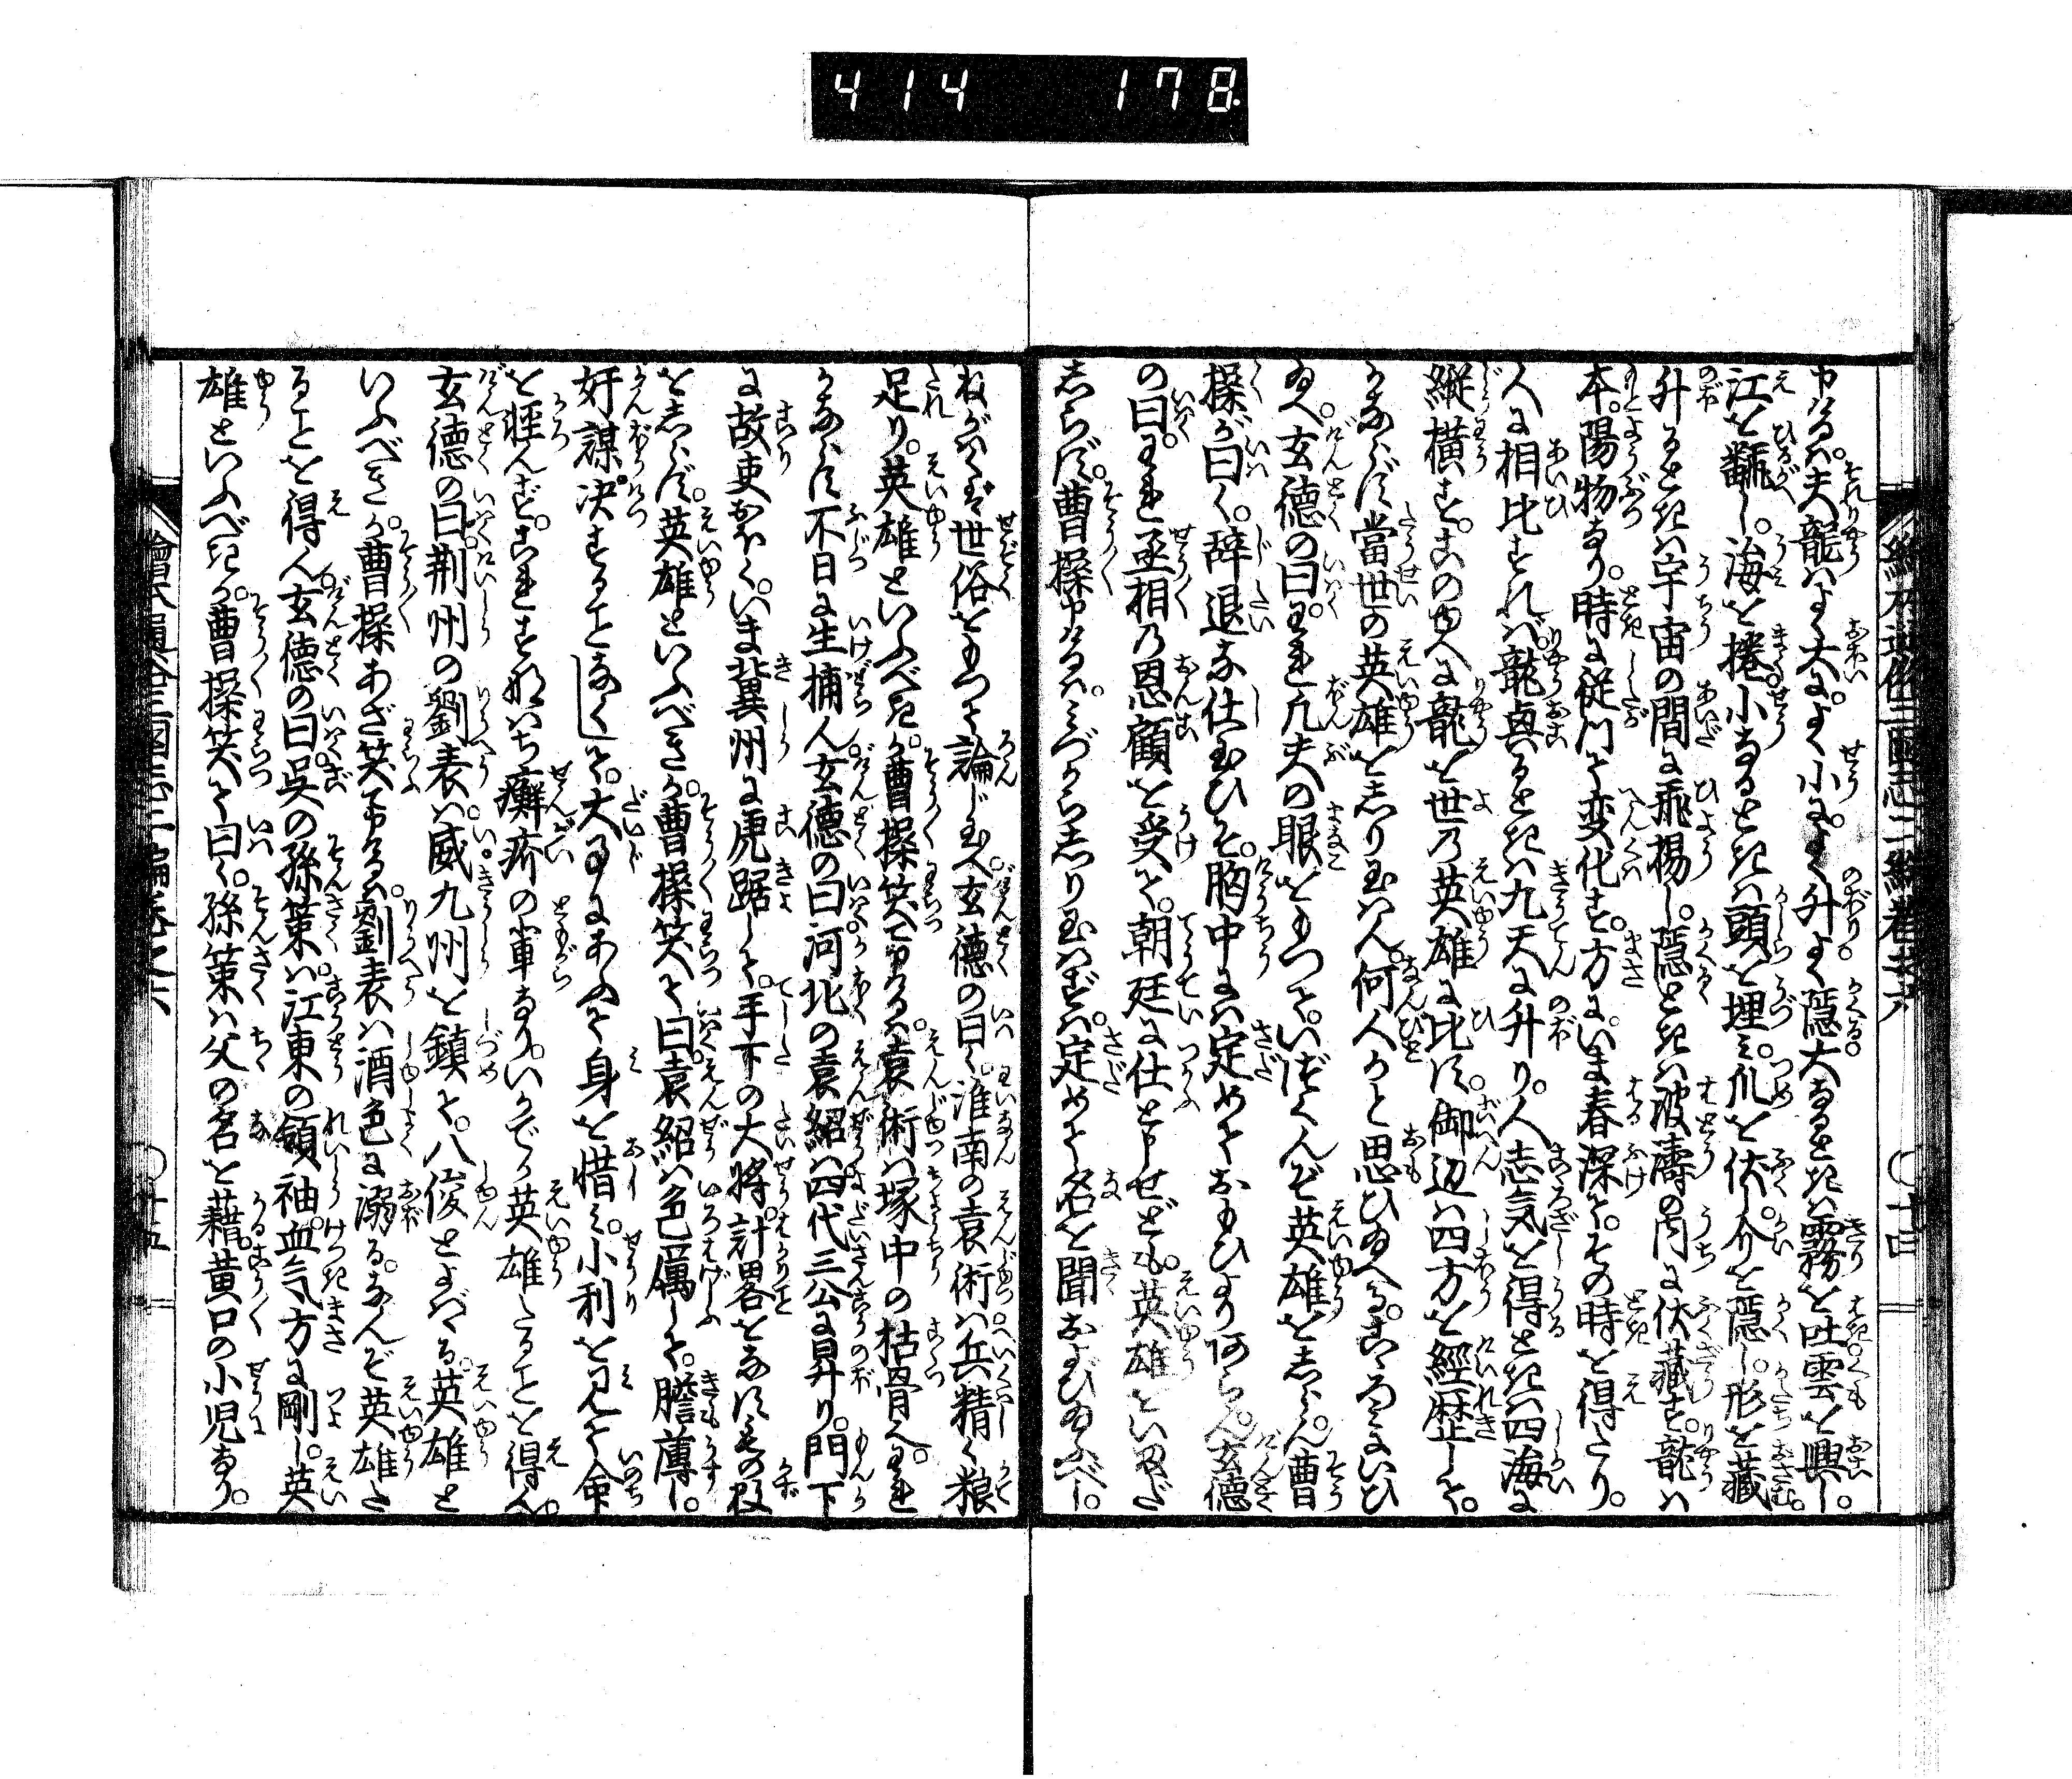 414 178
申けるハ。夫龍ハよく大によく小によく升よく隠大なるときハ霧を吐雲を興し。
江を飜し。海を捲。小なるときハ頭を埋ミ。爪を伏し介を隠し。形を藏。
升るときハ宇宙の間に飛揚し。隠ときハ波濤の内に伏藏す。龍ハ
本。陽物なり。時に従つて変化す。方にいま春深て。その時を得たり。
人に相比すれバ。龍興るときハ九天に升り。人志気を得ときハ四海に
縦横す。このゆへに龍を世乃英雄に比す。御辺ハ四方を經歴して。
かならず當世の英雄を志り玉ハん。何人かと思ひ給へる。こゝろミにいひ
給へ。玄徳の曰。われ凡夫の眼をもつて。いづくんぞ英雄を志らん。曹
操が曰く。辞退な仕玉ひそ。胸中にハ定めておもひよりあらん。玄徳
の曰。われ丞相乃恩顧を受て。朝廷に仕と申せども。英雄といまだ
志らず。曹操申けるハ。ミづから志り玉ハずバ。定めて名を聞および給ふべし。
ねがハくバ世俗をもつて論じ玉へ。玄徳の曰く。淮南の袁術ハ兵精く粮
足り。英雄といふべきか。曹操笑て申けるハ。袁術ハ塚中の枯骨へ。われ
かならず不日に生捕ん。玄徳の曰。河北の袁紹ハ四代三公に昇り。門下
に故吏おほく。いま冀州に虎踞して。手下の大將。計畧をなすもの数
を志らず。英雄といふべきか。曹操笑て曰。袁紹ハ色厲して。膽薄し。
好謀。决することなくして。大事にあふて身を惜ミ。小利を见て命
を軽んず。これすなハち癬疥の軍なり。いかでか英雄たることを得ん。
玄徳の曰。荆州の劉表ハ。威九州を鎮て。八俊とよバる。英雄と
いふべきか。曹操あざ笑申けるハ。劉表ハ酒色に溺る。なんぞ英雄た
ることを得ん。玄徳の曰。呉の孫策ハ。江東の領袖。血気方に剛し。英
雄といふべきか。曹操笑て曰く。孫策ハ父の名を藉。黄口の小児なり。